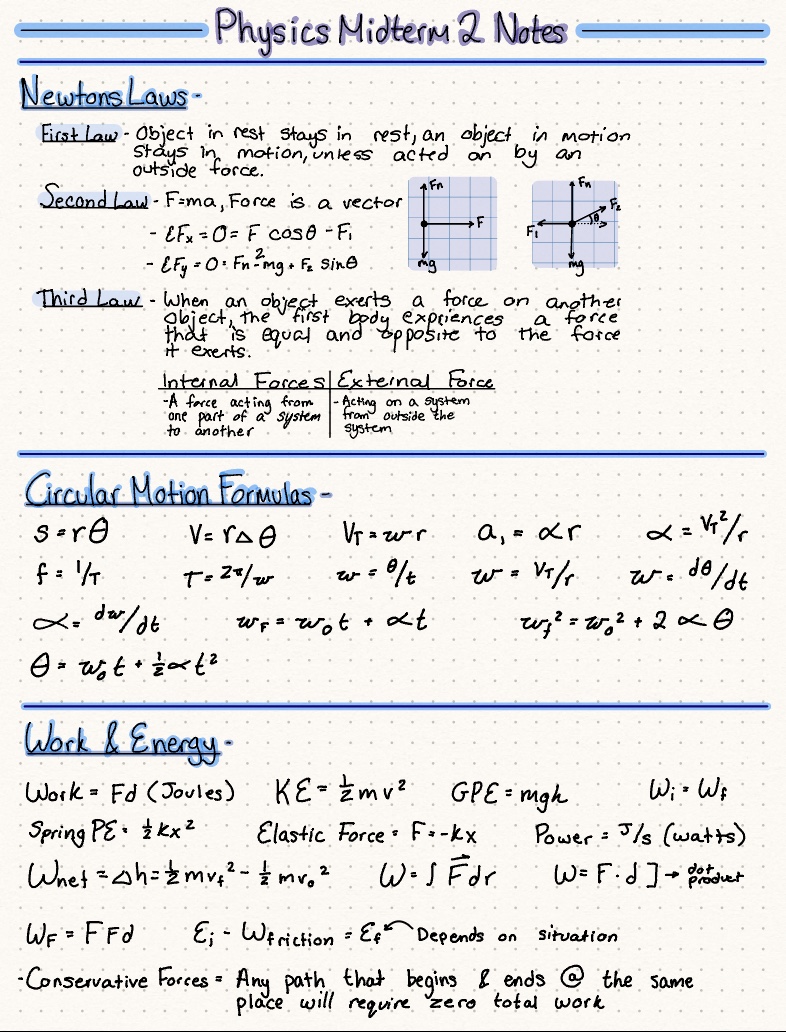 Physics Midterm 2 Notes
Newtons Laws -
First Law - Object in rest stays in rest, an object in motion
stays in motion, unless acted on by an
outside force.
Second Law - F=ma, Force is a vector
- ΣFx = 0 = F cosθ - F₁
- ΣFy = 0 = Fn - mg + F₂ sinθ
2
Fn
F
mg
Fn
F₂
θ
F₁
mg
Third Law - When an object exerts a force on another
object, the first body expriences a force
that is equal and opposite to the force
it exerts.
Internal Forces | External Force
- A force acting from
one part of a system
to another
- Acting on a system
from outside the
system
Circular Motion Formulas -
s = rθ V = r△θ V_T = wr a, = αr α = V_T²/r
f = 1/T T = 2π/w w = θ/t w = V_T/r w = dθ/dt
α = dw/dt w_F = w₀t + αt w_f² = w₀² + 2αθ
θ = w₀t + ½αt²
Work & Energy -
Work = Fd (Joules) KE = ½mv² GPE = mgh Wi = Wf
Spring PE = ½kx² Elastic Force = F = -kx Power = J/s (watts)
Wnet = △h = ½mv_f² - ½mv₀² W = ∫F⃗dr W = F · d ] → dot product
W_F = FFd Ei - Wfriction = Ef Depends on situation
- Conservative Forces = Any path that begins & ends @ the same
place will require zero total work